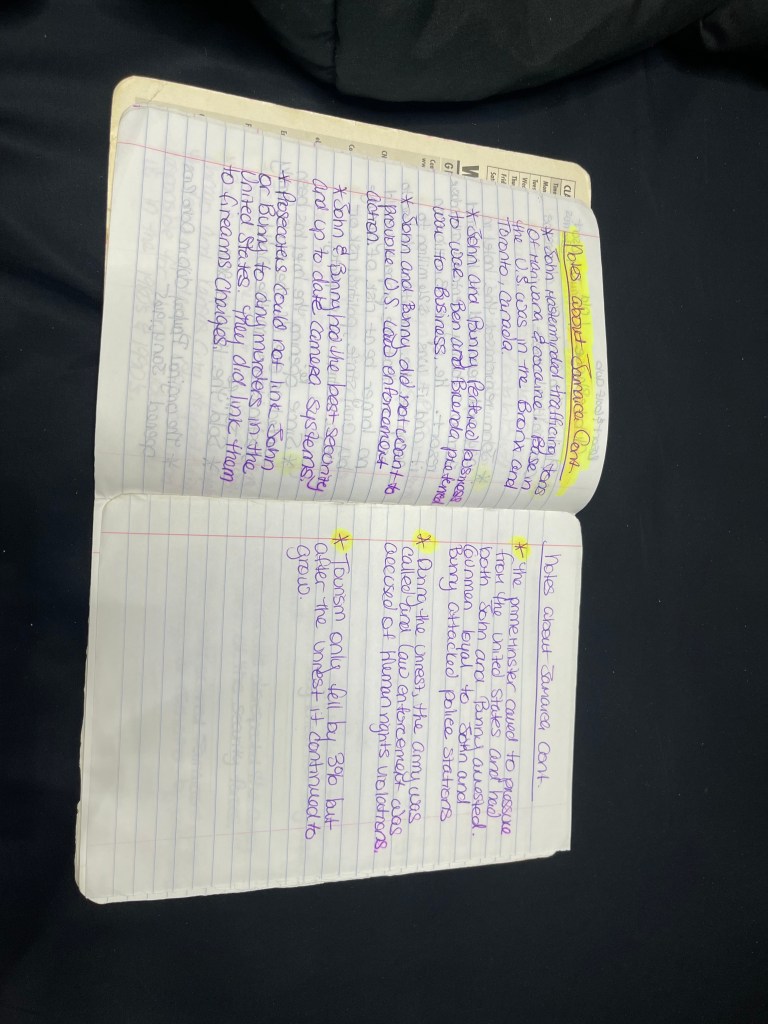 Notes about Jamaica Cont.
* John masterminded trafficing tons
of Marijuana & cocaine. Base in
the U.S was in the Bronx and
Toronto, Canada
* John and Bunny Pefered business
to war. Ben and Brenda prefered
war to Business
* John and Bunny did not want to
provoke U.S law enforcement
action.
* John & Bunny had the best security
and up to date camera systems.
* Prosecutors could not link John
or Bunny to any murders in the
United States. They did link them
to firearms charges.
Notes about Jamaica Cont.
* The prime minster caved to pressure
from the united states and had
both John and Bunny arrested.
Gunmen loyal to John and
Bunny attacked police stations
* During the unrest, the army was
called and law enforcement was
accused of Human rights violations.
* Tourism only fell by 3% but
after the unrest it continued to
grow.